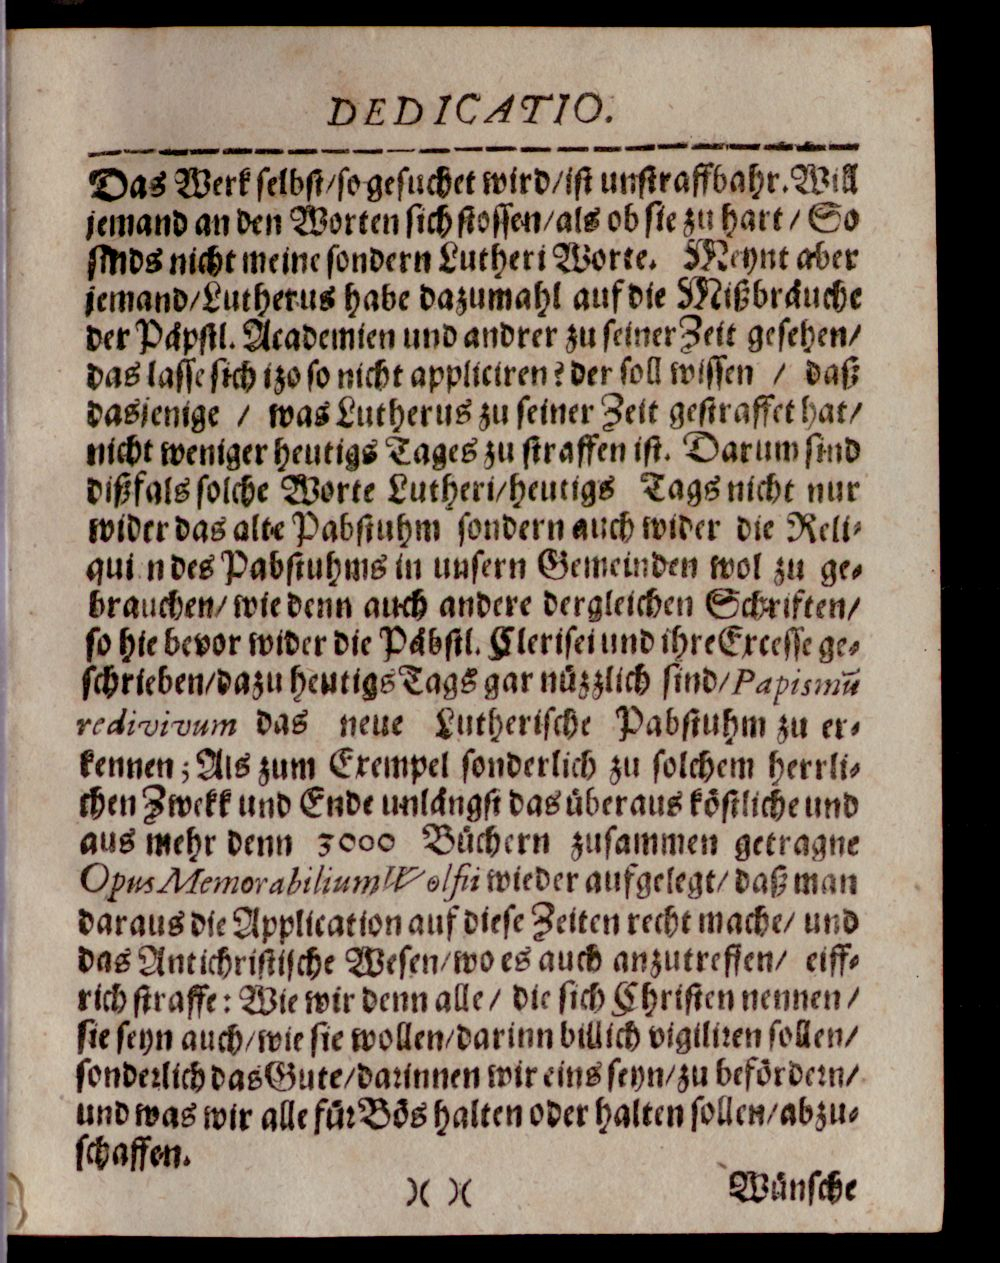 DEDICATIO.
Das Werk selbst/so gesuchet wird/ist unstraffbahr. Will
jemand an den Worten sich stossen/als ob sie zu hart / So
sinds nicht meine sondern Lutheri Worte. Meynt aber
jemand/Lutherus habe dazumahl auf die Mißbräuche
der Päpstl. Academien und andrer zu seiner Zeit gesehen/
das lasse sich izo so nicht appliciren? der soll wissen / daß
dasjenige / was Lutherus zu seiner Zeit gestraffet hat/
nicht weniger heutigs Tages zu straffen ist. Darum sind
dißfals solche Worte Lutheri/heutigs Tags nicht nur
wider das alte Pabstuhm sondern auch wider die Reli-
qui n des Pabstuhms in unsern Gemeinden wol zu ge-
brauchen/wie denn auch andere dergleichen Schriften/
so hie bevor wider die Päbstl. Clerisei und ihre Excesse ge-
schrieben/dazu heutigs Tags gar nüzzlich sind/Papismũ
redivivum das neue Lutherische Pabstuhm zu er-
kennen; Als zum Exempel sonderlich zu solchem herrli-
chen Zwekk und Ende unlängst das überaus köstliche und
aus mehr denn 3000 Büchern zusammen getragne
Opus Memorabilium Wolfii wieder aufgelegt/daß man
daraus die Application auf diese Zeiten recht mache/ und
das Antichristische Wesen/wo es auch anzutreffen/ eiff-
rich straffe: Wie wir denn alle / die sich Christen nennen /
sie seyn auch/wie sie wollen/darinn billich vigiliren sollen/
sonderlich das Gute/darinnen wir eins seyn/zu befördern/
und was wir alle für Bös halten oder halten sollen/abzu-
schaffen.
)( )( Wünsche